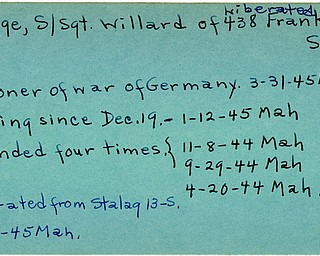 Liberated
ge, S/Sgt. Willard of 438 Frank
S
oner of war of Germany. 3-31-45
ing since Dec. 19. - 1-12-45 Mah
nded four times. { 11-8-44 Mah
9-29-44 Mah
4-20-44 Mah
ated from Stalag 13-S.
-45 Mah.